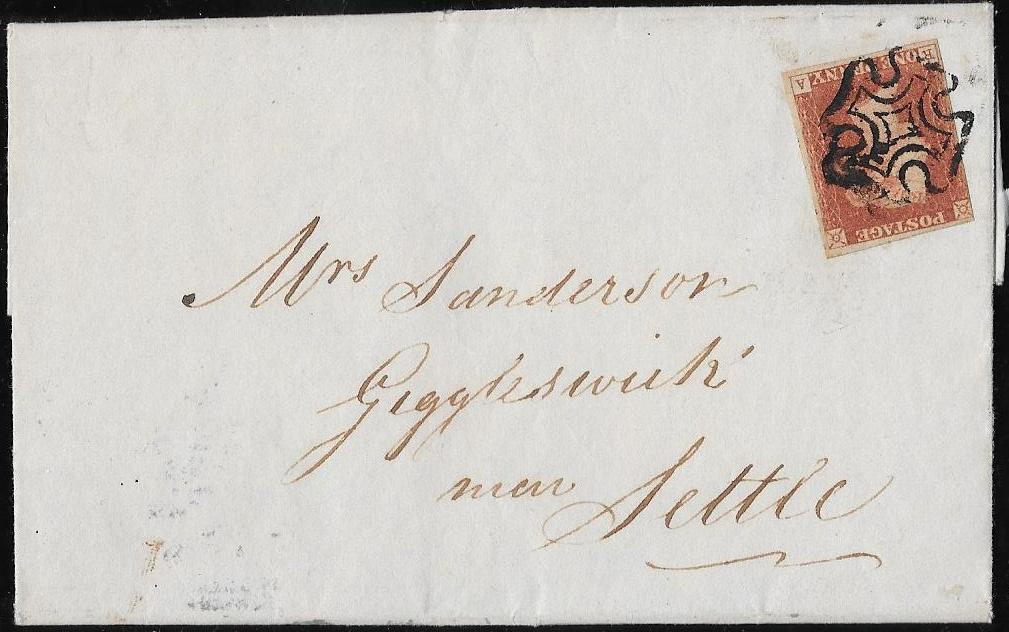 POSTAGE
ONE PENNY
R A
Mrs Sanderson
Giggleswick
near Settle